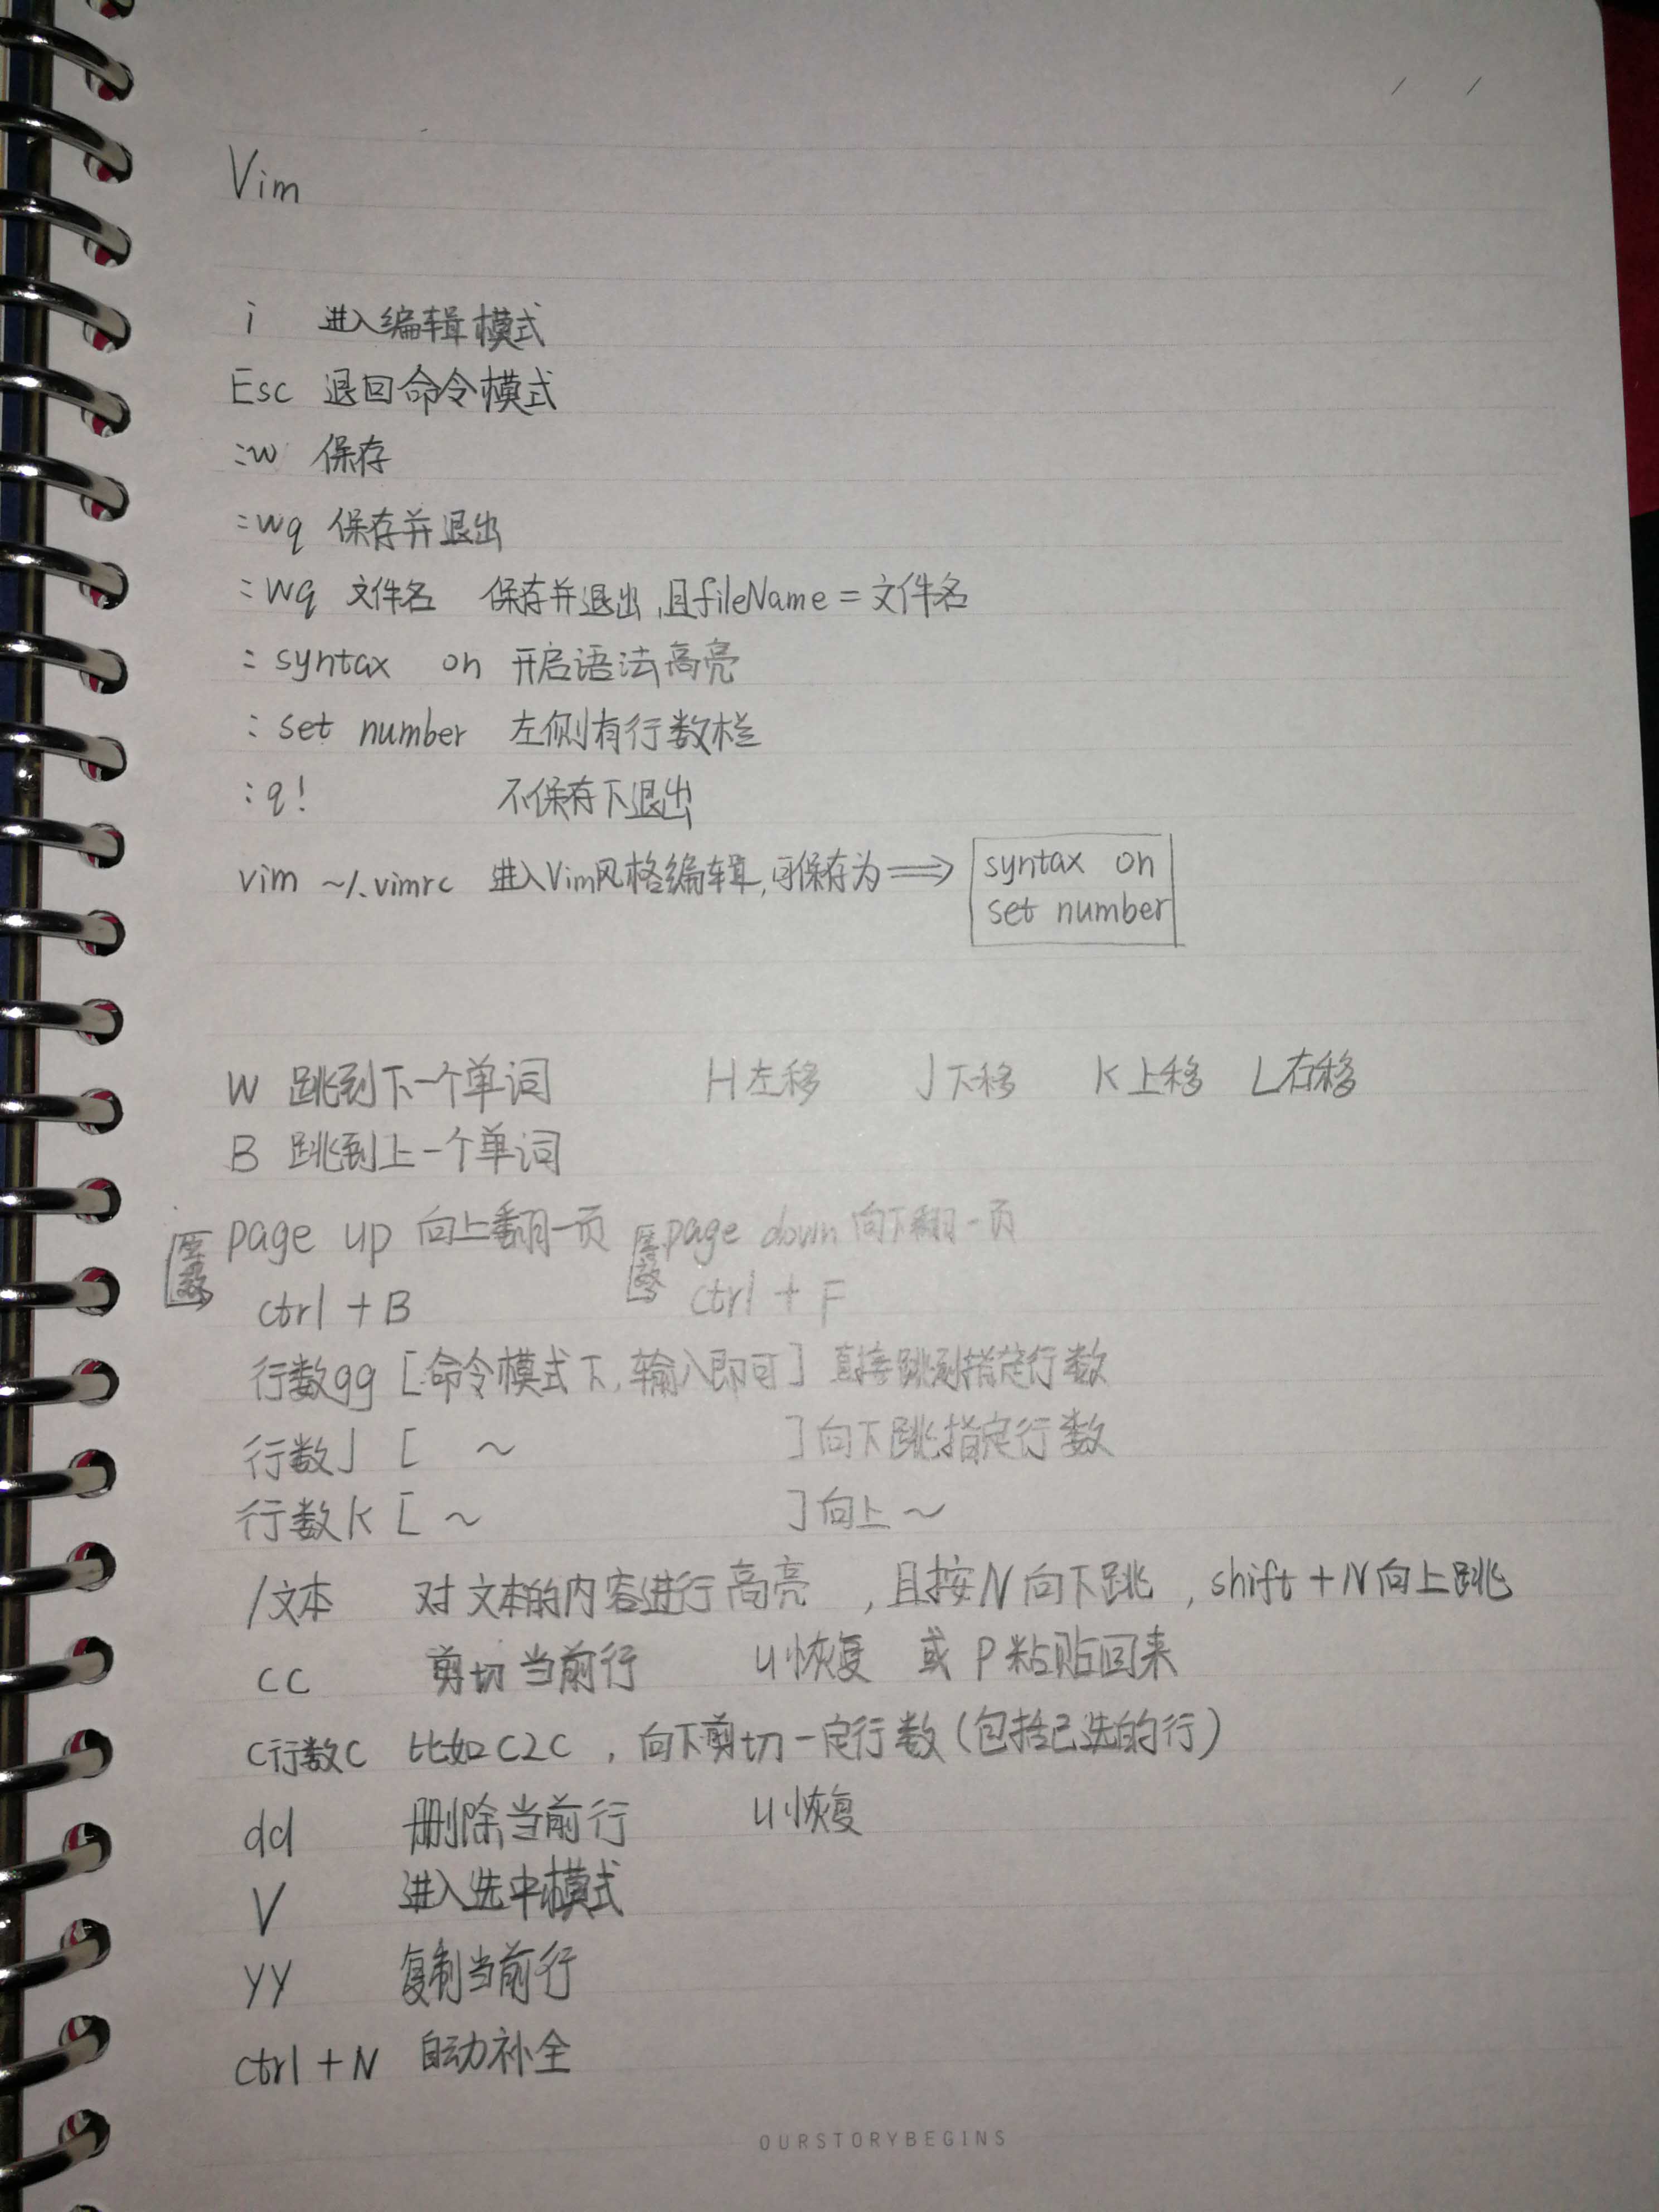 Vim
i 进入编辑模式
Esc 退回命令模式
:w 保存
:wq 保存并退出
:wq 文件名 保存并退出,且fileName = 文件名
: syntax on 开启语法高亮
: set number 左侧有行数栏
:q! 不保存下退出
vim ~/.vimrc 进入Vim风格编辑,可保存为 ⟹ syntax on
set number
W 跳到下一个单词 H左移 J下移 K上移 L右移
B 跳到上一个单词
page up 向上翻一页 page down 向下翻一页
ctrl + B ctrl + F
行数gg [命令模式下,输入即可] 直接跳到指定行数
行数J [ ~ ] 向下跳指定行数
行数K [ ~ ] 向上 ~
/文本 对文本的内容进行高亮 ,且按N向下跳 , shift + N向上跳
cc 剪切当前行 u恢复 或 P粘贴回来
C行数C 比如C2C , 向下剪切一定行数(包括已选的行)
dd 删除当前行 u恢复
V 进入选中模式
yy 复制当前行
ctrl + N 自动补全
OURSTORYBEGINS